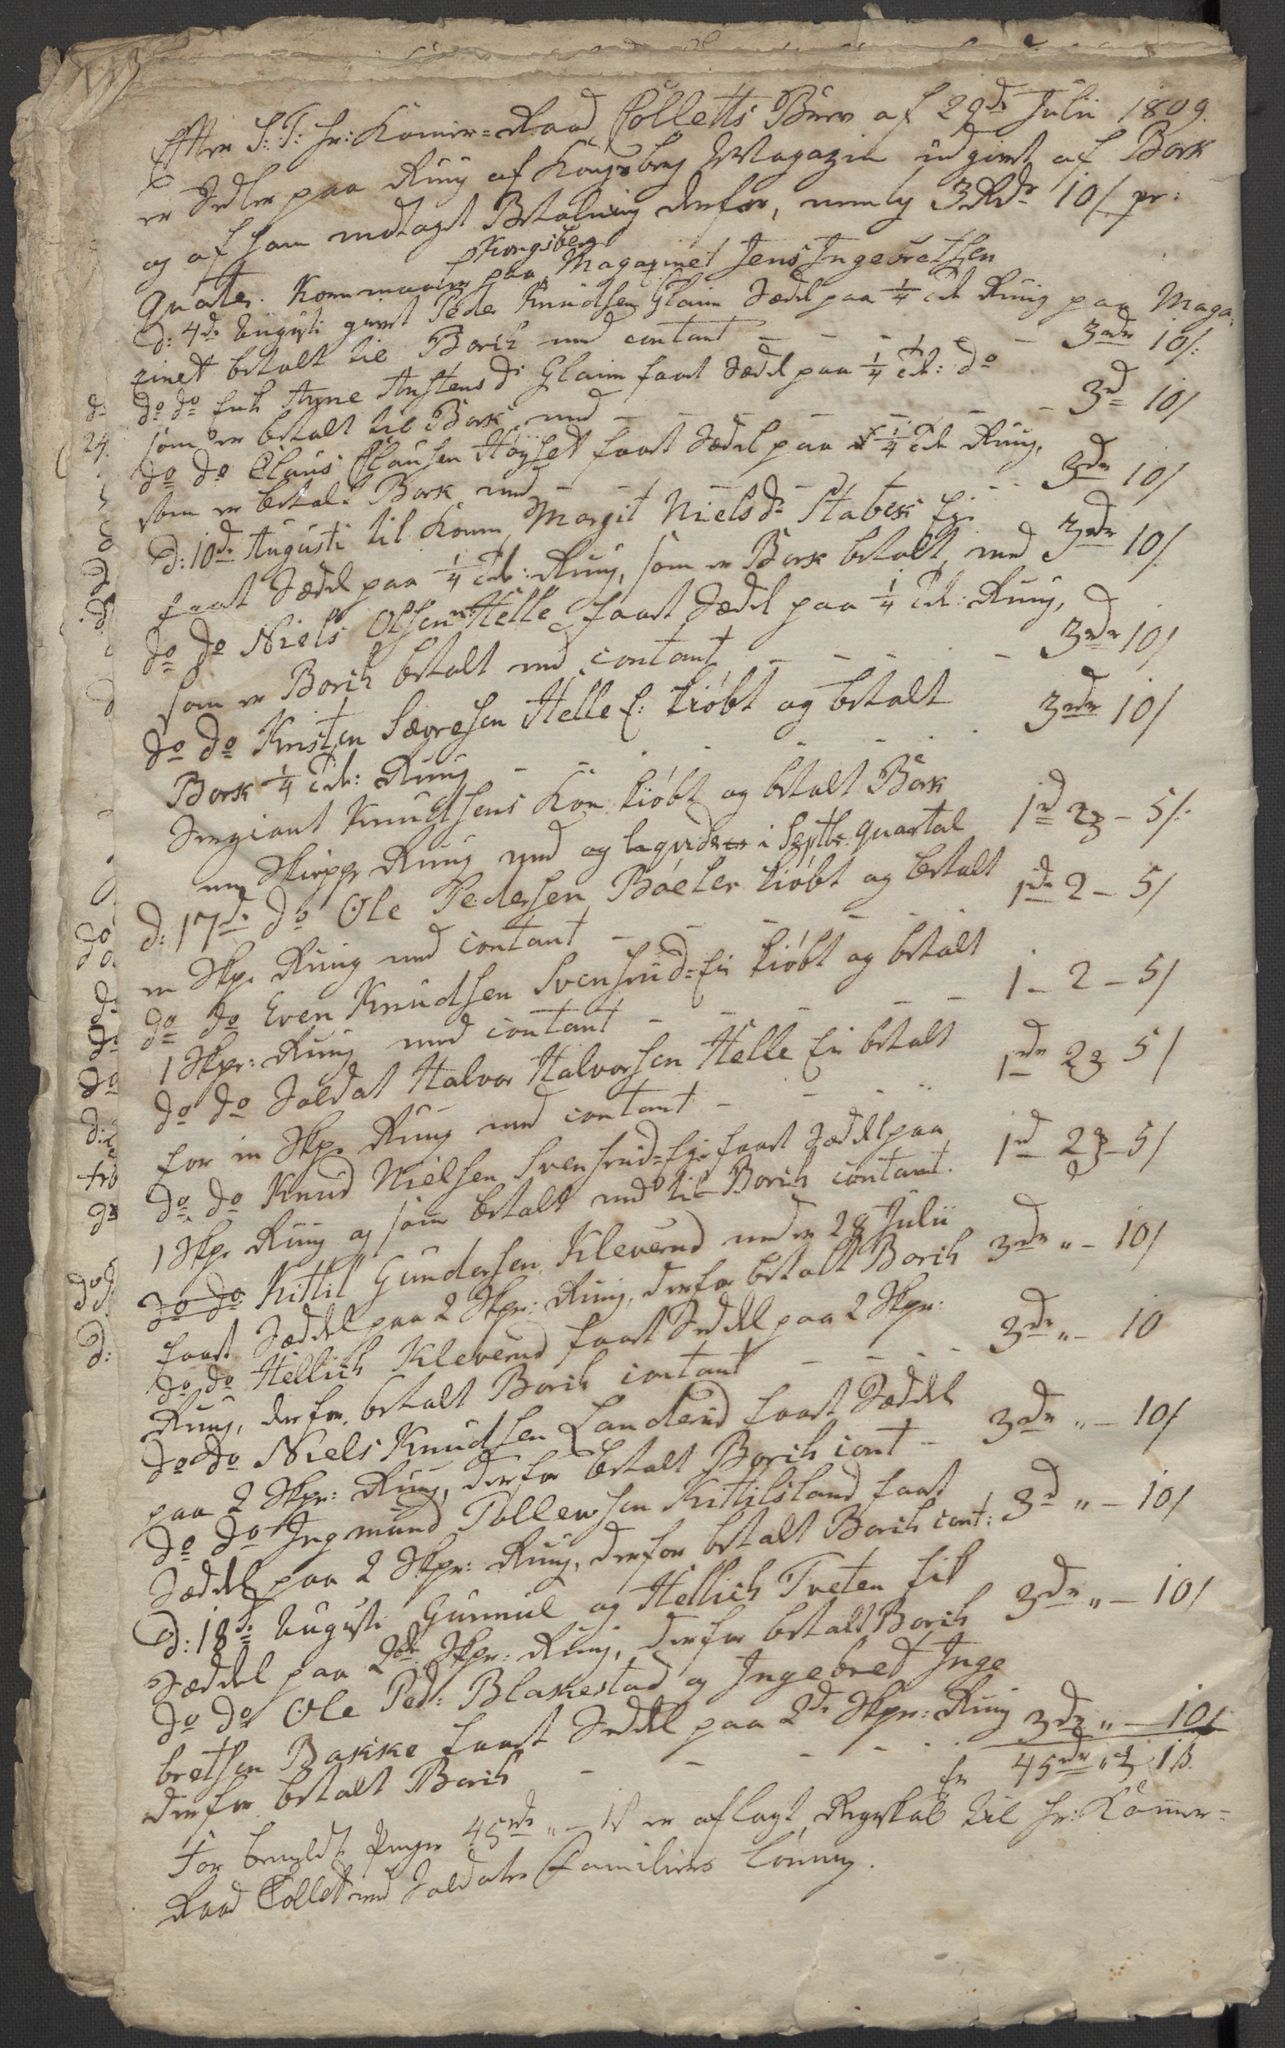 Efter S: T: Hr: Kamer=Raad Colletts Brev af 29de Julii 1809.
er Sedler paa Ruug af Kongsberg Magazin udgivet af Bork
og af ham modtaget Betaling derfor, nemlig 3 Rdr 10 / pr:
Kongsberg
Quarter. Kornmaaler paa Magazinet Jens Ingebretsen
d: 4de Augusti givet Peder Knudsen Glaim Sedel paa 1/4 Td: Ruug paa Maga-
zinet betalt til Borch med contant - - - - - 3rdr 10/:
do do Enk Anne Austensdr Glaim faaet Sedel paa 1/4 Td: do
som er betalt til Bork med - - - - - 3d 10/
do do Claus Clausen Høyset faaet Sedel paa 1/4 Td Ruug,
som er betalt Bork med - - - - 3dr 10/
d: 10de Augusti til Kone Margit Nielsdr Stabek Eje
faaet Sedel paa 1/4 Td: Ruug, som er Bork betalt med 3rdr 10/
do do Niels Olsen Helle faaet Sedel paa 1/4 Td: Ruug,
som er Borch betalt med contant - - - - 3rdr 10/
do do Kristen Sægresen Helle E: kiøbt og betalt
Bork 1/4 Td: Ruug - - - - - 3rdr 10/
Sergiant Knudsens Kone kiøbt og betalt Bork
en Skieppe Ruug med og leqvideres i Septbr. Quartal 1d 2 3 - 5/:
d: 17de do Ole Pedersen Bøeler kiøbt og betalt
en Skpe Ruug med contant - - - - 1dr 2 - 5/
do do Even Knudsen Svensrud=Ei kiøbt og betalt
1 Skpe: Ruug med contant - - - - 1 - 2 - 5/
do do Soldat Halvor Halvorsen Helle Ei betalt
for en Skpe Ruug med contant - - - - 1dr 23 5/
do do Knud Nielsen Svensrud=Eje faaet Sedel paa
1 Skpe Ruug og som betalt med til Borch contant. 1d 23-5/
do do Kittil Gundersen Kleverud under 28 Julii
faaet Sæddel paa 2 Skpr: Ruug, derfor betalt Borch 3dr " - 10/
do do Hellich Kleverud faaet Sedel paa 2 Skpr:
Ruug, derfor betalt Borch contant - - - - 3dr " - 10
do do Niels Knudsen Landerud faaet Sæddel
paa 2 Skpr: Ruug, derfor betalt Borch cont - 3dr " - 10/
do do Ingmund Tollewsen Kittilsland faaet
Sæddel paa 2 Skpr: Ruug, derfor betalt Borch cont: 3d " - 10/
d: 18de Augusti Gunnul og Hellich Tveten fik
Sæddel paa 2de Skpr: Ruug, derfor betalt Borch 3dr " - 10/
do do Ole Ped: Blakestad og Ingebret Inge
bretsen Bakke faaet Sedel paa 2de Skpr: Ruug
derfor betalt Borch - - - - 3dr " - 10/
er 45rdr " 3 1 ß.
For bemeldte Penger 45rdr " - 1/ er aflagt Regnskab til Hr: Kamer-
Raad Collett med Soldater Familiers Lønning.